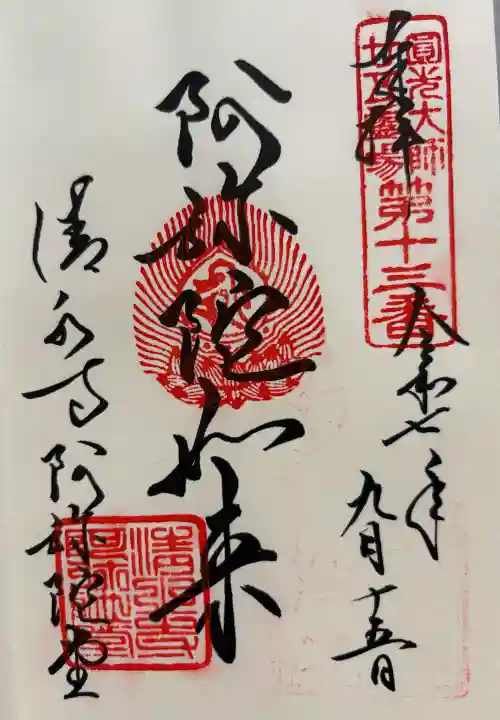 奉拝
圓光大師
廿五霊場
第十三番
令和七年
九月十五日
阿弥陀如来
清水寺阿弥陀堂